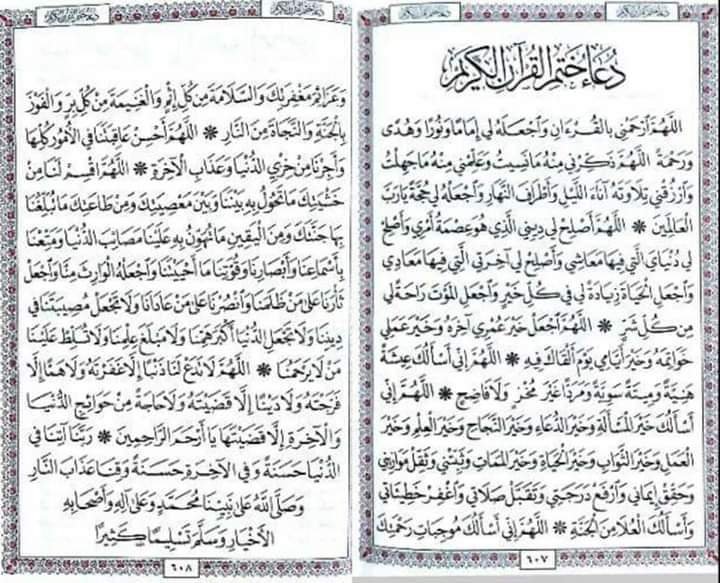 دُعَاءُ خَتْمِ الْقُرْآنِ الْكَرِيمِ
دُعَاءُ خَتْمِ الْقُرْآنِ الْكَرِيمِ
اللَّهُمَّ ارْحَمْنِي بِالْقُرْءَانِ وَاجْعَلْهُ لِي إِمَامًا وَنُورًا وَهُدًى
وَرَحْمَةً اللَّهُمَّ ذَكِّرْنِي مِنْهُ مَا نَسِيتُ وَعَلِّمْنِي مِنْهُ مَا جَهِلْتُ
وَارْزُقْنِي تِلَاوَتَهُ آنَاءَ اللَّيْلِ وَأَطْرَافَ النَّهَارِ وَاجْعَلْهُ لِي حُجَّةً يَا رَبَّ
الْعَالَمِينَ ❊ اللَّهُمَّ أَصْلِحْ لِي دِينِي الَّذِي هُوَ عِصْمَةُ أَمْرِي وَأَصْلِحْ
لِي دُنْيَايَ الَّتِي فِيهَا مَعَاشِي وَأَصْلِحْ لِي آخِرَتِي الَّتِي فِيهَا مَعَادِي
وَاجْعَلِ الْحَيَاةَ زِيَادَةً لِي فِي كُلِّ خَيْرٍ وَاجْعَلِ الْمَوْتَ رَاحَةً لِي
مِن كُلِّ شَرٍّ ❊ اللَّهُمَّ اجْعَلْ خَيْرَ عُمْرِي آخِرَهُ وَخَيْرَ عَمَلِي
خَوَاتِمَهُ وَخَيْرَ أَيَّامِي يَوْمَ أَلْقَاكَ فِيهِ ❊ اللَّهُمَّ إِنِّي أَسْأَلُكَ عِيشَةً
هَنِيَّةً وَمِيتَةً سَوِيَّةً وَمَرَدًّا غَيْرَ مُخْزٍ وَلَا فَاضِحٍ ❊ اللَّهُمَّ إِنِّي
أَسْأَلُكَ خَيْرَ الْمَسْأَلَةِ وَخَيْرَ الدُّعَاءِ وَخَيْرَ النَّجَاحِ وَخَيْرَ الْعِلْمِ وَخَيْرَ
الْعَمَلِ وَخَيْرَ الثَّوَابِ وَخَيْرَ الْحَيَاةِ وَخَيْرَ الْمَمَاتِ وَثَبِّتْنِي وَثَقِّلْ مَوَازِينِي
وَحَقِّقْ إِيمَانِي وَارْفَعْ دَرَجَتِي وَتَقَبَّلْ صَلَاتِي وَاغْفِرْ خَطِيئَاتِي
وَأَسْأَلُكَ الْعُلَا مِنَ الْجَنَّةِ ❊ اللَّهُمَّ إِنِّي أَسْأَلُكَ مُوجِبَاتِ رَحْمَتِكَ
٦٠٧
دُعَاءُ خَتْمِ الْقُرْآنِ الْكَرِيمِ
وَعَزَائِمَ مَغْفِرَتِكَ وَالسَّلَامَةَ مِن كُلِّ إِثْمٍ وَالْغَنِيمَةَ مِنْ كُلِّ بِرٍّ وَالْفَوْزَ
بِالْجَنَّةِ وَالنَّجَاةَ مِنَ النَّارِ ❊ اللَّهُمَّ أَحْسِنْ عَاقِبَتَنَا فِي الْأُمُورِ كُلِّهَا
وَأَجِرْنَا مِنْ خِزْيِ الدُّنْيَا وَعَذَابِ الْآخِرَةِ ❊ اللَّهُمَّ اقْسِمْ لَنَا مِنْ
خَشْيَتِكَ مَا تَحُولُ بِهِ بَيْنَنَا وَبَيْنَ مَعْصِيَتِكَ وَمِنْ طَاعَتِكَ مَا تُبَلِّغُنَا
بِهَا جَنَّتَكَ وَمِنَ الْيَقِينِ مَا تُهَوِّنُ بِهِ عَلَيْنَا مَصَائِبَ الدُّنْيَا وَمَتِّعْنَا
بِأَسْمَاعِنَا وَأَبْصَارِنَا وَقُوَّتِنَا مَا أَحْيَيْتَنَا وَاجْعَلْهُ الْوَارِثَ مِنَّا وَاجْعَلْ
ثَأْرَنَا عَلَى مَنْ ظَلَمَنَا وَانْصُرْنَا عَلَى مَنْ عَادَانَا وَلَا تَجْعَلْ مُصِيبَتَنَا فِي
دِينِنَا وَلَا تَجْعَلِ الدُّنْيَا أَكْبَرَ هَمِّنَا وَلَا مَبْلَغَ عِلْمِنَا وَلَا تُسَلِّطْ عَلَيْنَا
مَنْ لَا يَرْحَمُنَا ❊ اللَّهُمَّ لَا تَدَعْ لَنَا ذَنْبًا إِلَّا غَفَرْتَهُ وَلَا هَمًّا إِلَّا
فَرَّجْتَهُ وَلَا دَيْنًا إِلَّا قَضَيْتَهُ وَلَا حَاجَةً مِنْ حَوَائِجِ الدُّنْيَا
وَالْآخِرَةِ إِلَّا قَضَيْتَهَا يَا أَرْحَمَ الرَّاحِمِينَ ❊ رَبَّنَا آتِنَا فِي
الدُّنْيَا حَسَنَةً وَفِي الْآخِرَةِ حَسَنَةً وَقِنَا عَذَابَ النَّارِ
وَصَلَّى اللَّهُ عَلَى نَبِيِّنَا مُحَمَّدٍ وَعَلَى آلِهِ وَأَصْحَابِهِ
الْأَخْيَارِ وَسَلَّمَ تَسْلِيمًا كَثِيرًا
٦٠٨